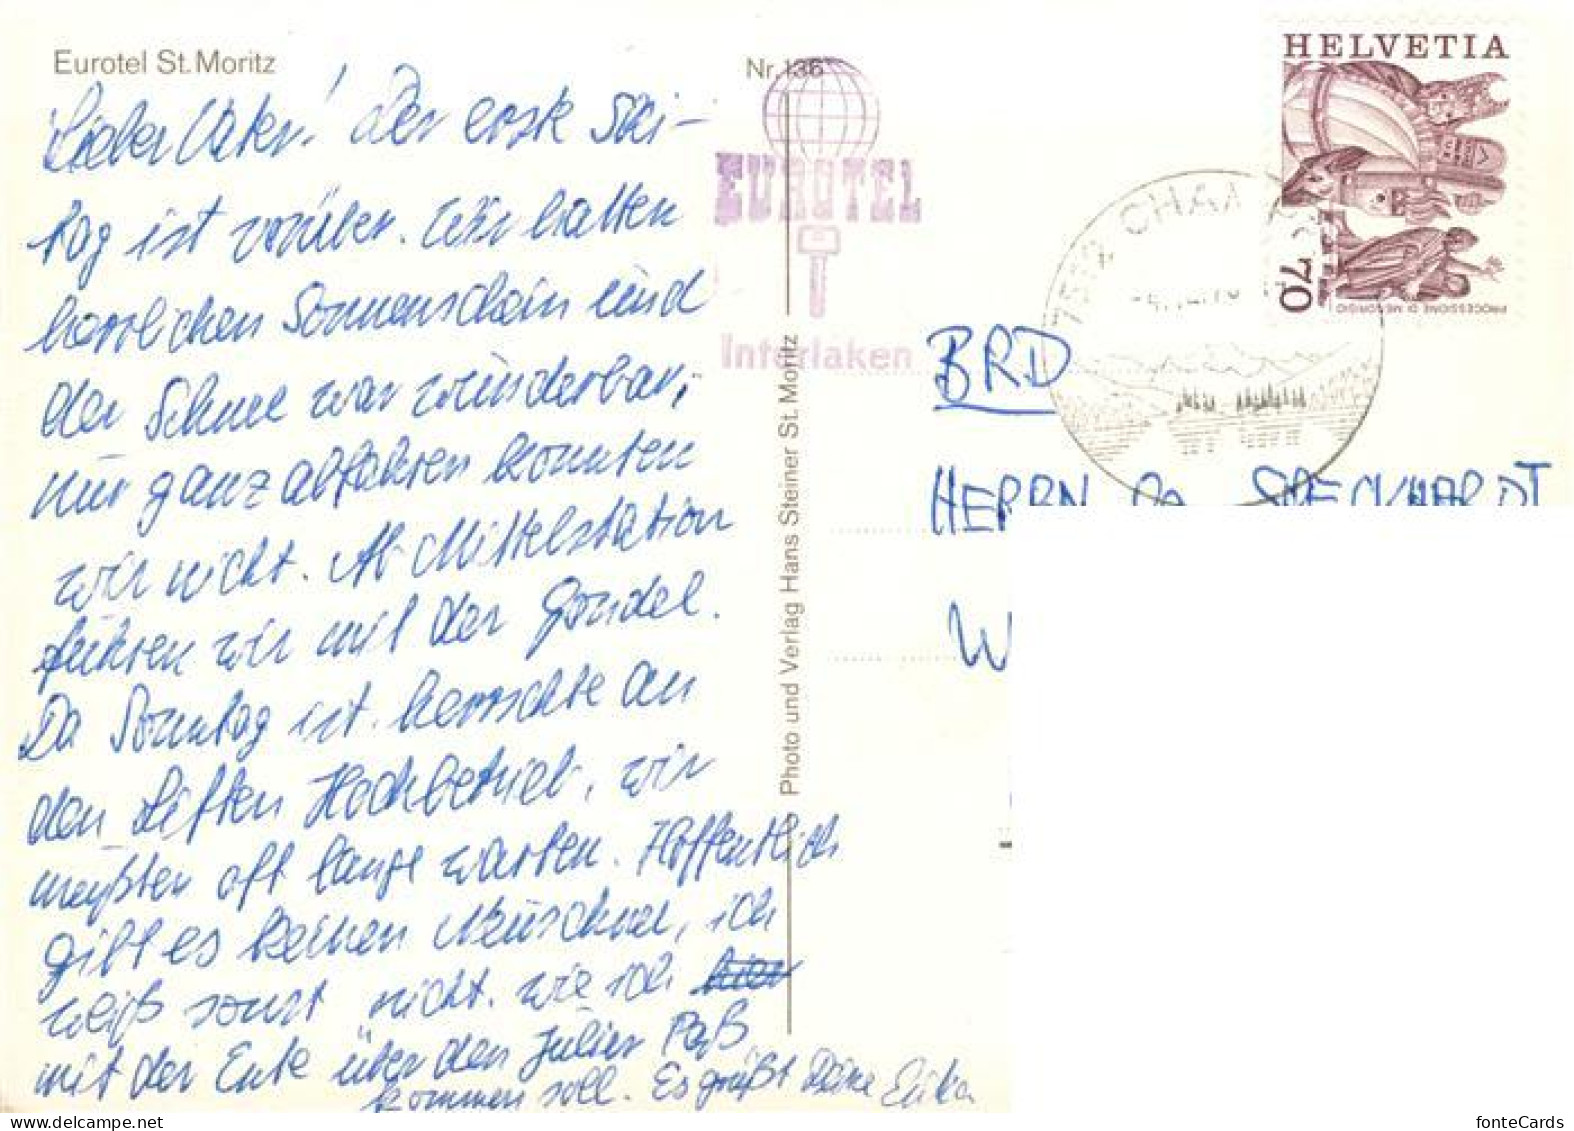 Eurotel St. Moritz
Nr. 136
Lieber Vater! Der erste Ski-
tag ist vorüber. Wir hatten
herrlichen Sonnenschein und
der Schnee war wunderbar,
nur ganz abfahren konnten
wir nicht. Ab Mittelstation
fuhren wir mit der Gondel.
Da Sonntag ist, herrschte an
den Liften Hochbetrieb, wir
mußten oft lange warten. Hoffentlich
gibt es keinen Neuschnee, ich
weiß sonst nicht, wie ich hier
mit der "Ente über den Julier Paß
kommen soll. Es grüßt Deine
Photo und Verlag Hans Steiner St. Moritz
EUROTEL
Interlaken
HELVETIA
70
PROCESSIONE D. MENDRISIO
BRD
HERRN
W
fonteCards